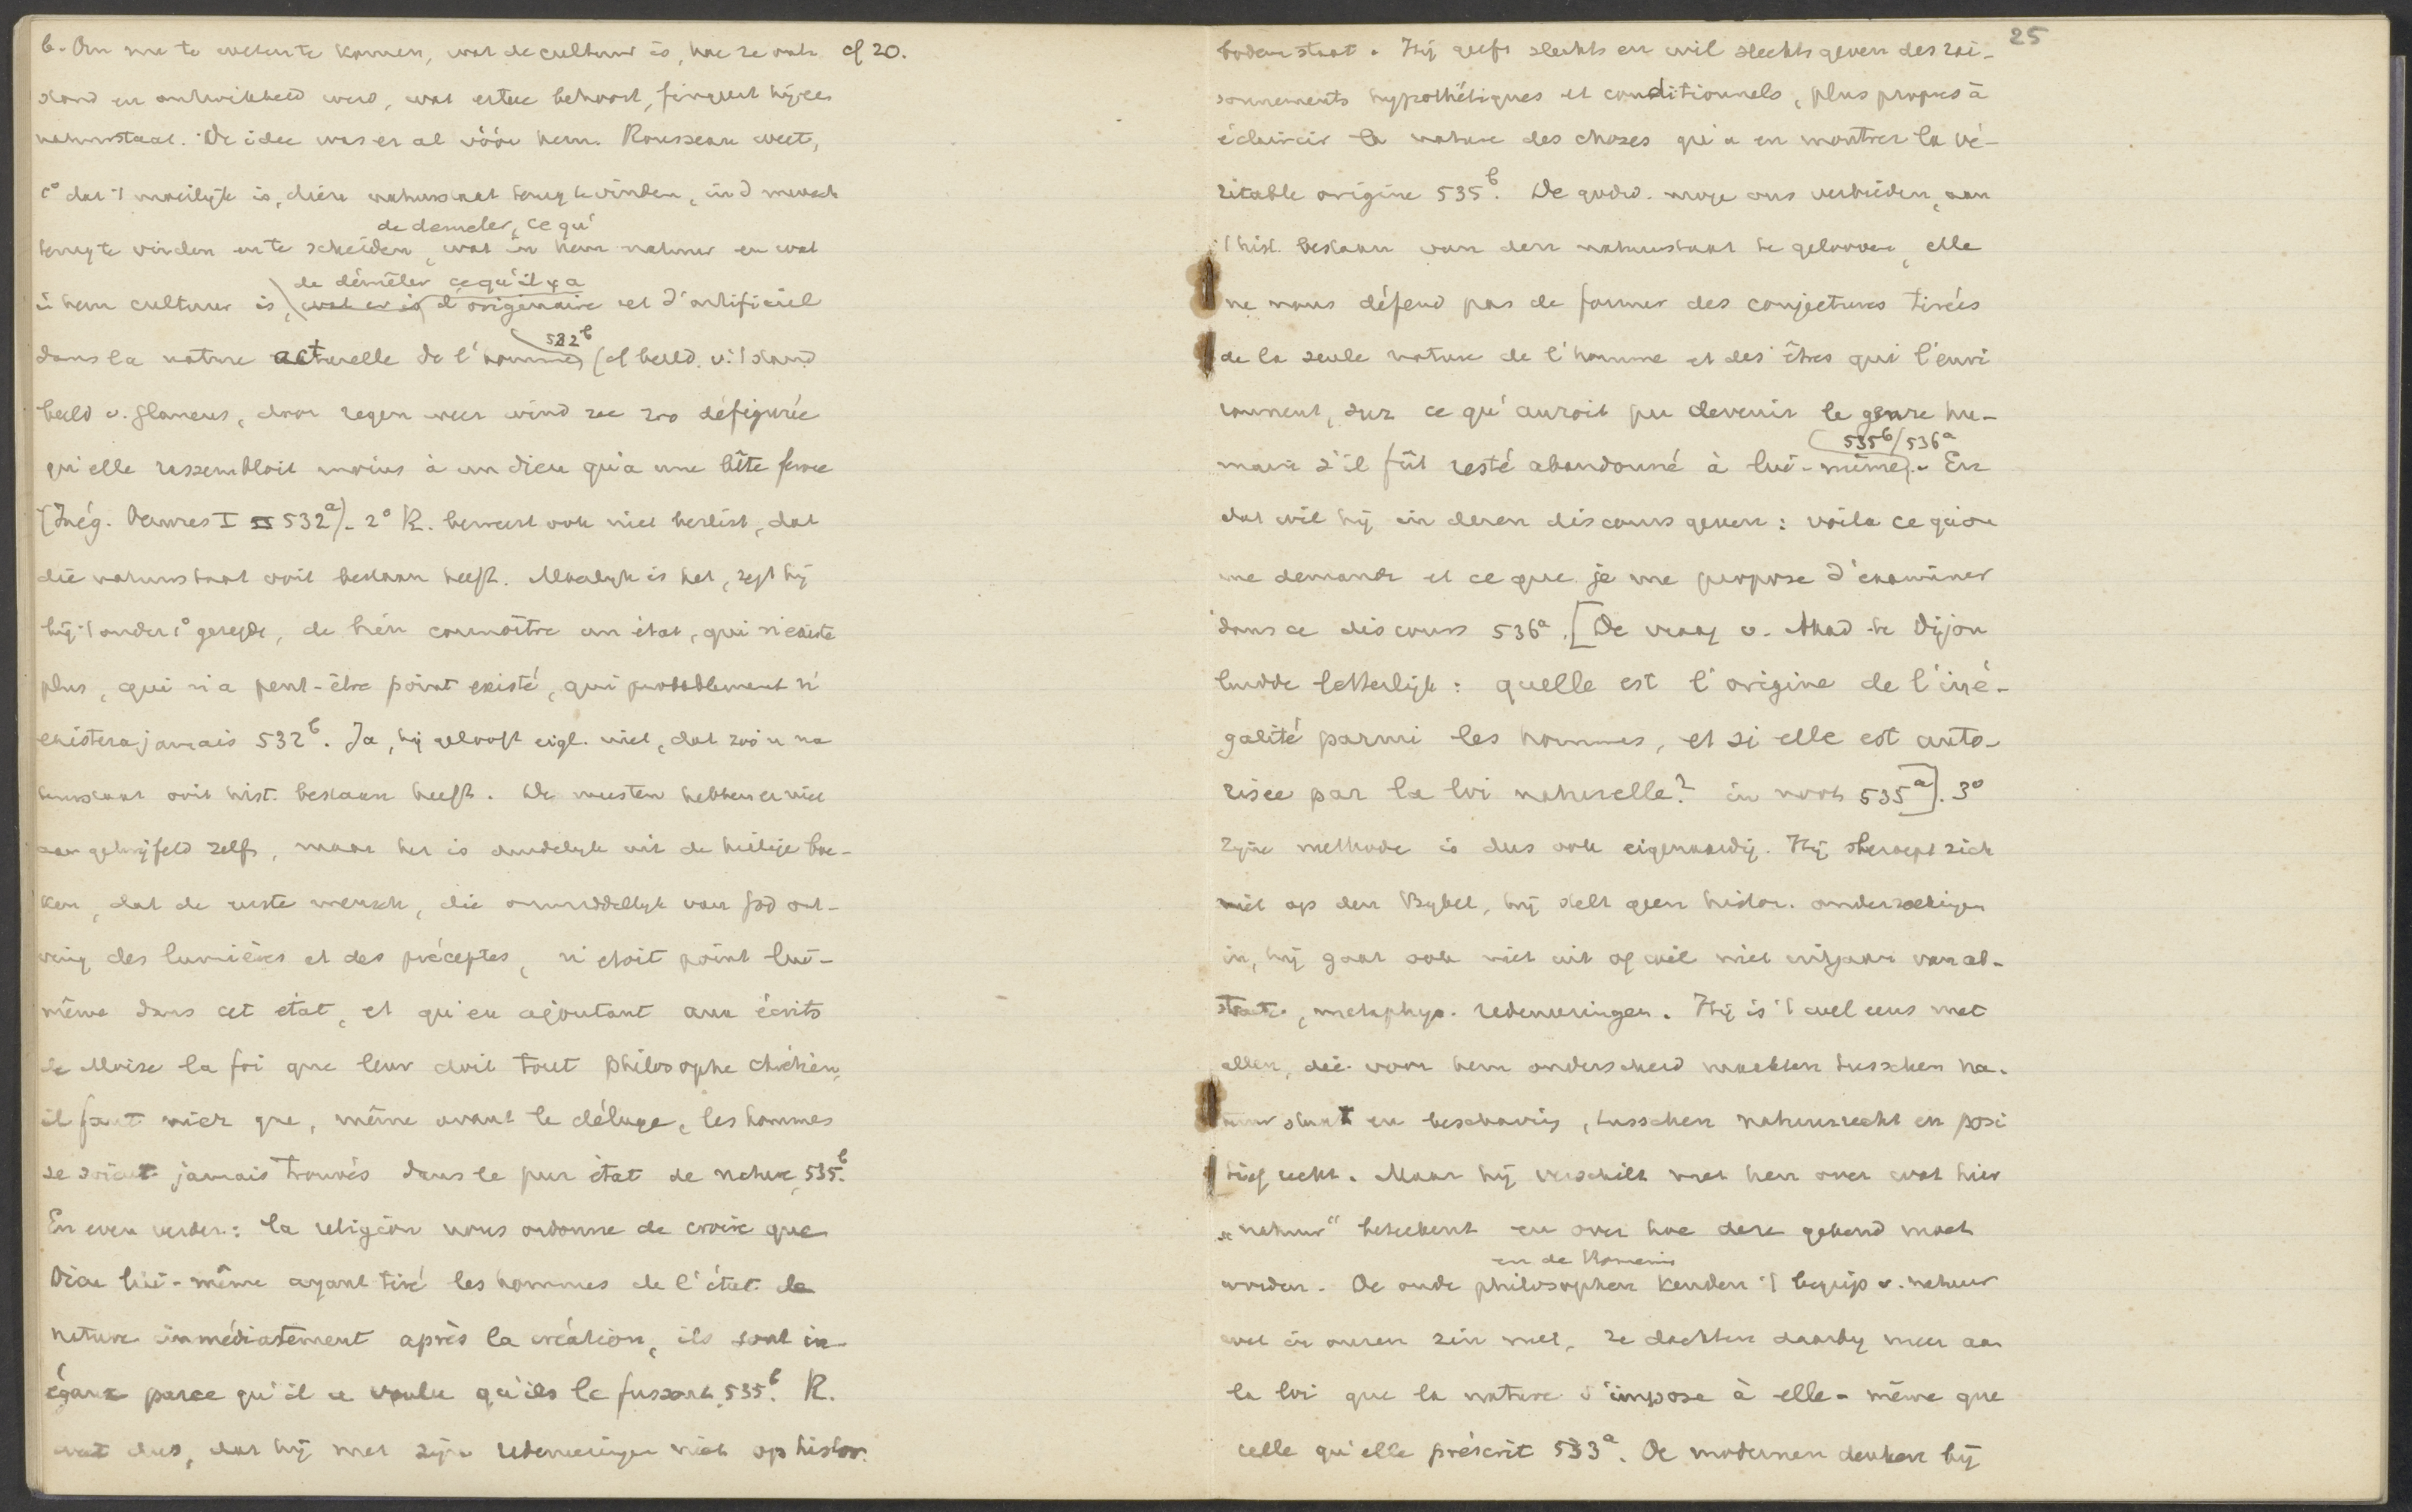 b. Om nu te weten te komen, wat de cultuur is, hoe ze ont- cf 20.
stond en ontwikkeld werd, wat ertoe behoort, fingeert hij een
natuurstaat. De idee was er al vóór hem. Rousseau weet,
1° dat 't moeilijk is, dien natuurstaat terug te vinden, in d mensch
de demeler, ce qu'
terug te vinden en te scheiden, wat in hem natuur en wat
de démêler ce qu'il y a
in hem cultuur is, wat er is d'originaire et d'artificiel
532b
dans la nature actuelle de l'homme (cf beeld. v. 't stand
beeld v. Glaucus, door regen weer wind zee zoo défigurée
qu'elle ressembloit moins à un dieu qu'a une bête feroce
(Inég. Oeuvres I 532a). 2° R. beweert ook niet beslist, dat
die natuurstaat ooit bestaan heeft. Moeilijk is het, zegt hij
bij 't onder 1° gezegde, de bien connoître un état, qui n'existe
plus, qui n'a peut-être point existé, qui probablement n'
existera jamais 532b. Ja, hij gelooft eigl. niet, dat zoo'n na
tuurstaat ooit hist. bestaan heeft. De meesten hebben er niet
aan getwijfeld zelfs, maar het is duidelijk uit de heilige boe-
ken, dat de eerste mensch, die onmiddellijk van God ont-
ving des lumières et des préceptes, n'etoit point lui-
même dans cet état, et qu'en ajoutant aux écrits
de Moise la foi que leur doit tout philosophe chrétien,
il faut nier que, même avant le déluge, les hommes
se soient jamais trouvés dans le pur état de nature, 535b.
En even verder: la religion nous ordonne de croire que
Dieu lui-même ayant tiré les hommes de l'état de
nature immédiatement après la création, ils sont in-
égaux parce qu'il a voulu qu'ils le fussent 535b. R.
weet dus, dat hij met zijn redeneeringen niet op histor.
25
bodem staat. Hij geeft slechts en wil slechts geven des rai-
sonnements hypothétiques et conditionnels, plus propres à
éclaircir la nature des choses qu'a en montrer la vé-
ritable origine 535b. De godsd. moge ons verbieden, aan
't hist. bestaan van den natuurstaat te gelooven, elle
ne nous défend pas de former des conjectures tirées
de la seule nature de l'homme et des êtres qui l'envi
ronnent, sur ce qu'auroit pu devenir le genre hu-
535b/536a
main s'il fût resté abandonné à lui-même. En
dat wil hij in dezen discours geven: voila ce qu'on
me demande et ce que je me propose d'examiner
dans ce discours 536a. [De vraag v. Akad te Dijon
luidde letterlijk: quelle est l'origine de l'iné-
galité parmi les hommes, et si elle est auto-
risée par la loi naturelle? in noot 535a]. 3°
Zijne methode is dus ook eigenaardig. Hij beroept zich
niet op den Bybel, hij stelt geen histor. onderzoekingen
in, hij gaat ook niet uit of wil niet uitgaan van ab-
stracte, metaphys. redeneeringen. Hij is 't wel eens met
allen, die voor hem onderscheid maakten tusschen na-
tuurstaat en beschaving, tusschen natuurrecht en posi
tief recht. Maar hij verschilt met hen over wat hier
„natuur" beteekent en over hoe deze gekend moet
en de Romeinen
worden. De oude philosophen kenden 't begrip v. natuur
wel in onzen zin niet, ze dachten daarbij meer aan
la loi que la nature s'impose à elle-même que
celle qu'elle préscrit 533a. De modernen denken bij